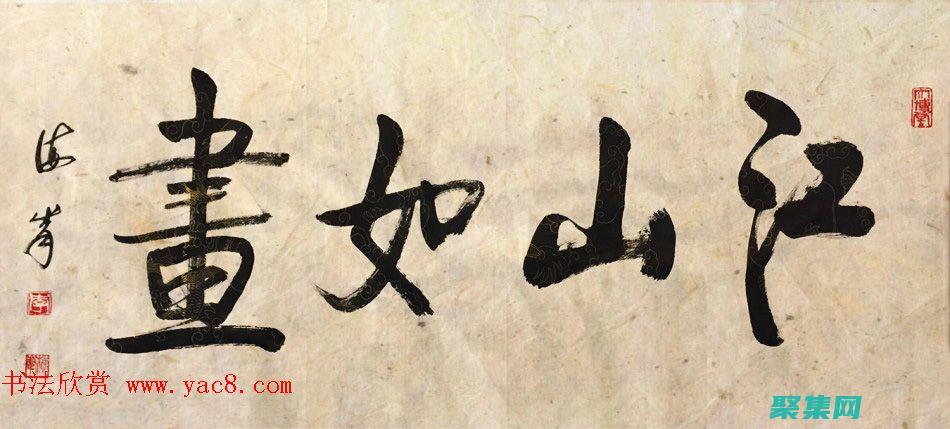 江山如畫
海岑
李
书法欣赏 www.yac8.com
聚集网